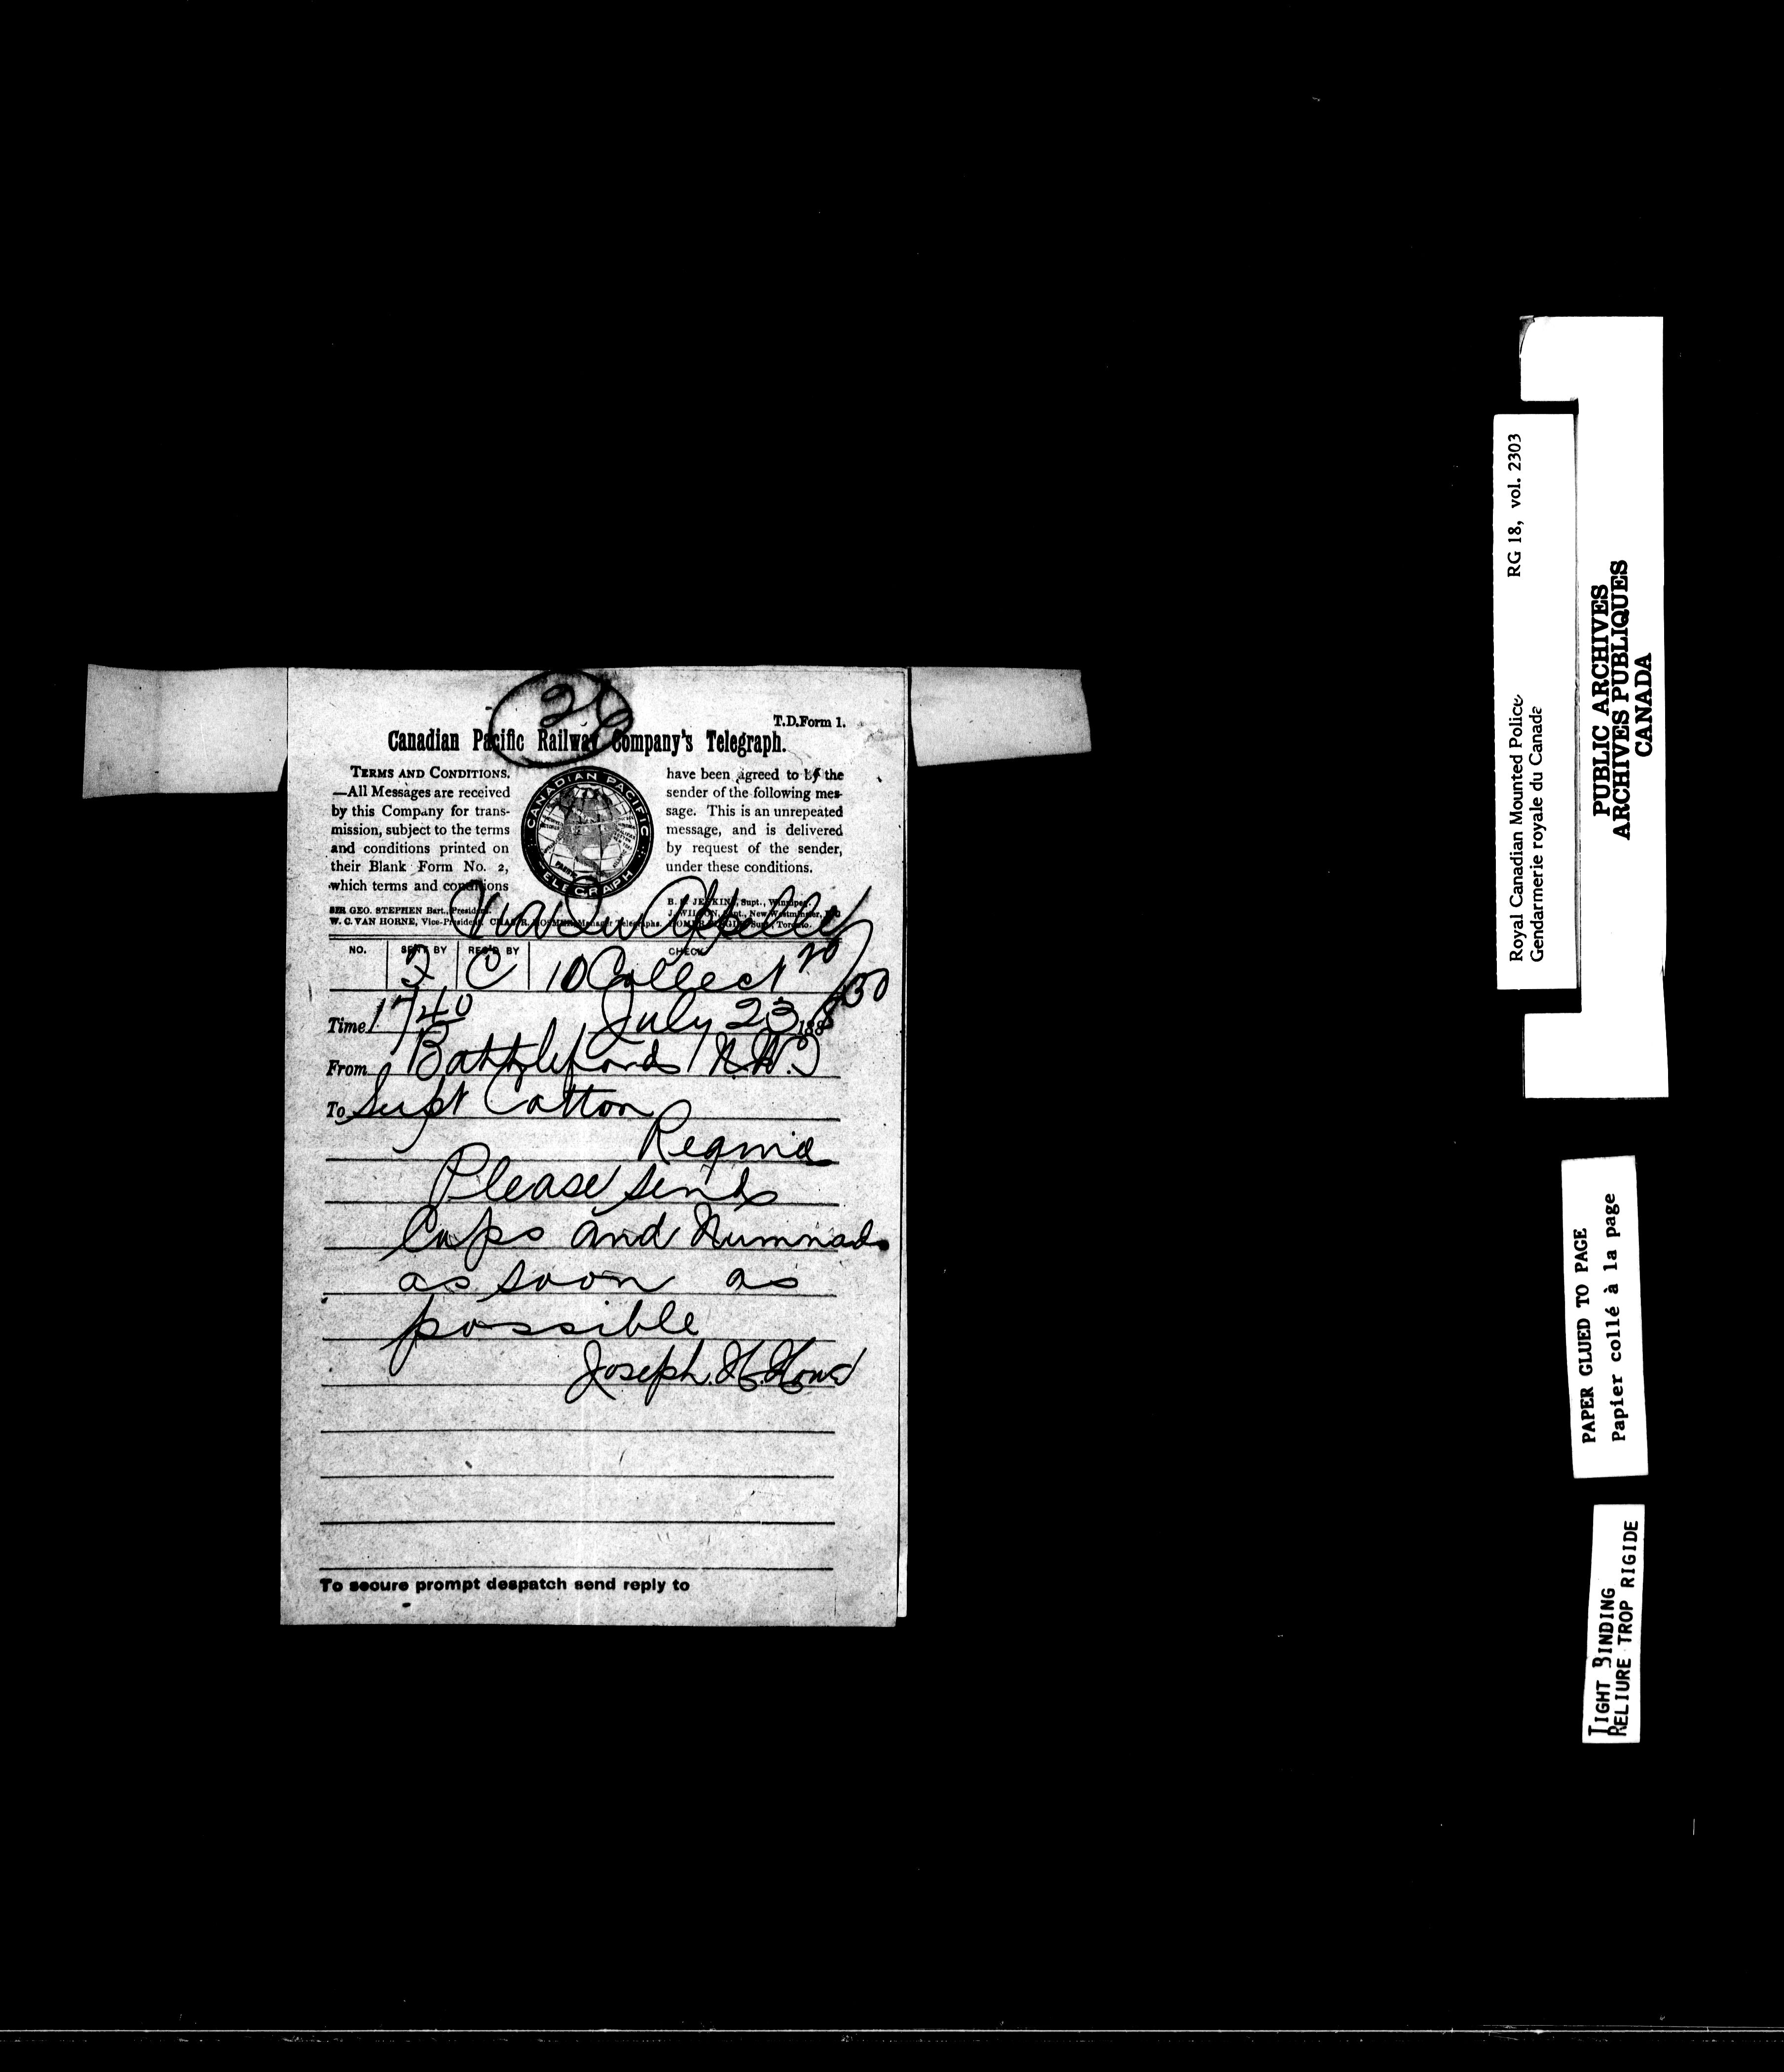 26
T.D.Form 1.
Canadian Pacific Railway Company's Telegraph.
TERMS AND CONDITIONS.
—All Messages are received
by this Company for trans-
mission, subject to the terms
and conditions printed on
their Blank Form No. 2,
which terms and conditions
CANADIAN PACIFIC
TELEGRAPH
have been agreed to by the
sender of the following mes-
sage. This is an unrepeated
message, and is delivered
by request of the sender,
under these conditions.
SIR GEO. STEPHEN Bart., President.
W. C. VAN HORNE, Vice-President.
B. S. JENKINS, Supt., Winnipeg.
J. WILSON, Supt., New Westminster, BC
Via Qu Appelle
NO. SENT BY REC'D BY CHECK
C 10 Collect 20/
130
Time 1740 July 23 188
From Battleford N.W.T
To Supt Cotton
Regina
Please send
Caps and Numnads
as soon as
possible
Joseph. H. Howe
To secure prompt despatch send reply to
Royal Canadian Mounted Police RG 18, vol. 2303
Gendarmerie royale du Canada
PUBLIC ARCHIVES
ARCHIVES PUBLIQUES
CANADA
PAPER GLUED TO PAGE
Papier collé à la page
TIGHT BINDING
RELIURE TROP RIGIDE